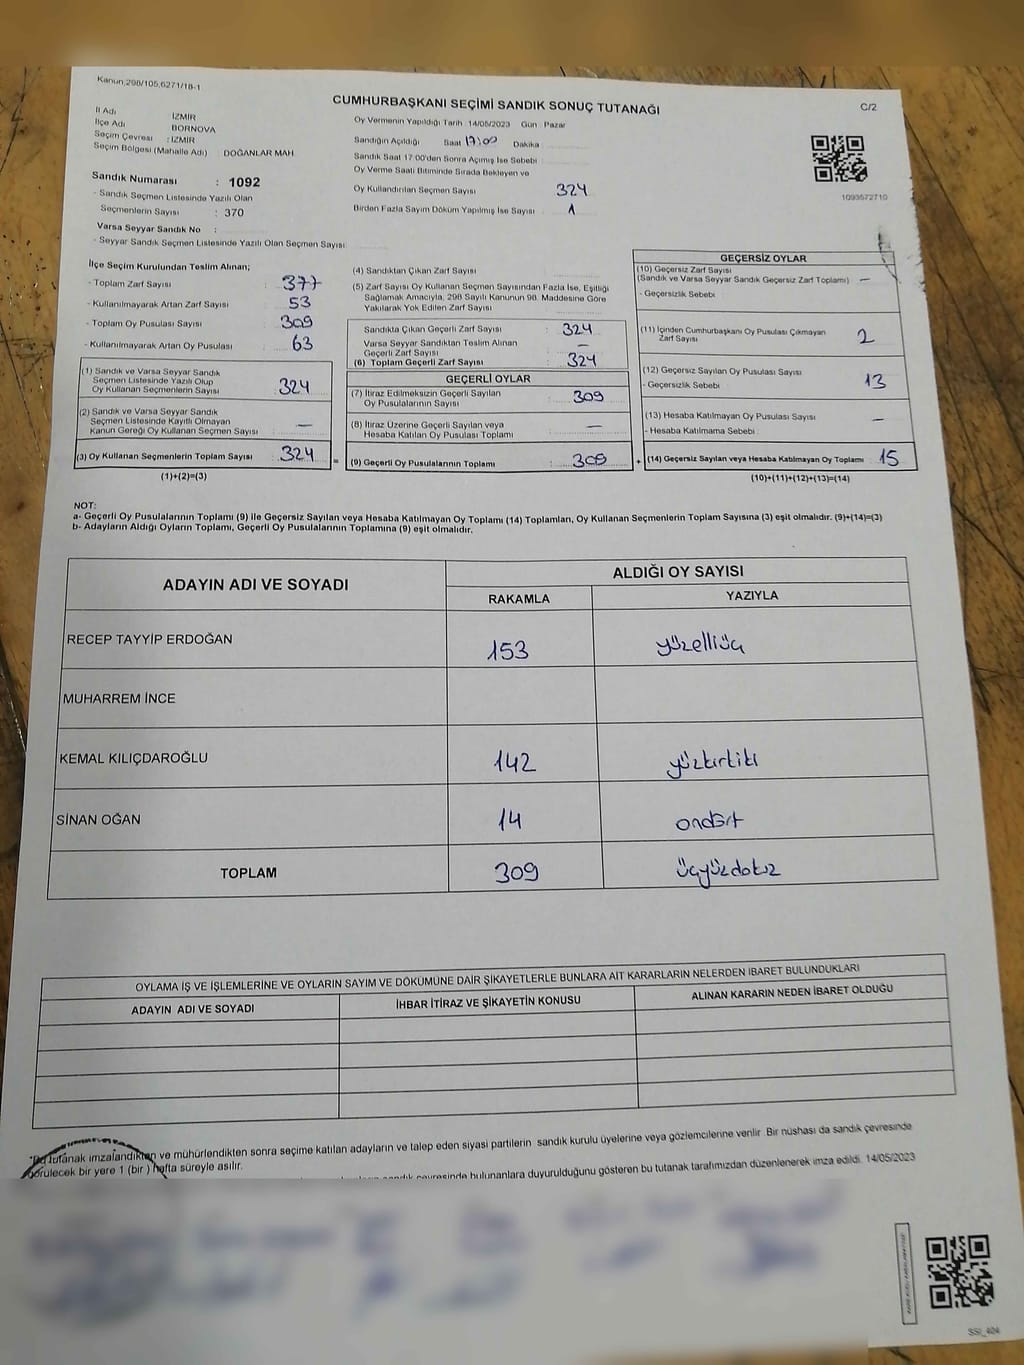 Kanun,298/105,6271/18-1
CUMHURBAŞKANI SEÇİMİ SANDIK SONUÇ TUTANAĞI
C/2
İl Adı İZMİR
İlçe Adı BORNOVA
Seçim Çevresi : İZMİR
Seçim Bölgesi (Mahalle Adı) : DOĞANLAR MAH.
Sandık Numarası : 1092
- Sandık Seçmen Listesinde Yazılı Olan
Seçmenlerin Sayısı : 370
Varsa Seyyar Sandık No :
- Seyyar Sandık Seçmen Listesinde Yazılı Olan Seçmen Sayısı:
Oy Vermenin Yapıldığı Tarih :14/05/2023 Gün : Pazar
Sandığın Açıldığı Saat 17:00 Dakika :
Sandık Saat 17:00'den Sonra Açımış İse Sebebi :
Oy Verme Saati Bitiminde Sırada Bekleyen ve
Oy Kullandırılan Seçmen Sayısı 324
Birden Fazla Sayım Döküm Yapılmış İse Sayısı : 1
1093572710
İlçe Seçim Kurulundan Teslim Alınan;
- Toplam Zarf Sayısı : 377
- Kullanılmayarak Artan Zarf Sayısı : 53
- Toplam Oy Pusulası Sayısı : 309
- Kullanılmayarak Artan Oy Pusulası : 63
(1) Sandık ve Varsa Seyyar Sandık
Seçmen Listesinde Yazılı Olup
Oy Kullanan Seçmenlerin Sayısı : 324
(2) Sandık ve Varsa Seyyar Sandık
Seçmen Listesinde Kayıtlı Olmayan
Kanun Gereği Oy Kullanan Seçmen Sayısı : —
(3) Oy Kullanan Seçmenlerin Toplam Sayısı : 324
(1)+(2)=(3)
=
(4) Sandıktan Çıkan Zarf Sayısı :
(5) Zarf Sayısı Oy Kullanan Seçmen Sayısından Fazla İse, Eşitliği
Sağlamak Amacıyla, 298 Sayılı Kanunun 98. Maddesine Göre
Yakılarak Yok Edilen Zarf Sayısı :
Sandıkta Çıkan Geçerli Zarf Sayısı : 324
Varsa Seyyar Sandıktan Teslim Alınan
Geçerli Zarf Sayısı : —
(6) Toplam Geçerli Zarf Sayısı : 324
GEÇERLİ OYLAR
(7) İtiraz Edilmeksizin Geçerli Sayılan
Oy Pusulalarının Sayısı : 309
(8) İtiraz Üzerine Geçerli Sayılan veya
Hesaba Katılan Oy Pusulası Toplamı : —
(9) Geçerli Oy Pusulalarının Toplamı : 309
+
GEÇERSİZ OYLAR
(10) Geçersiz Zarf Sayısı
(Sandık ve Varsa Seyyar Sandık Geçersiz Zarf Toplamı) : —
- Geçersizlik Sebebi
(11) İçinden Cumhurbaşkanı Oy Pusulası Çıkmayan
Zarf Sayısı : 2
(12) Geçersiz Sayılan Oy Pusulası Sayısı
- Geçersizlik Sebebi : 13
(13) Hesaba Katılmayan Oy Pusulası Sayısı : —
- Hesaba Katılmama Sebebi :
(14) Geçersiz Sayılan veya Hesaba Katılmayan Oy Toplamı : 15
(10)+(11)+(12)+(13)=(14)
NOT:
a- Geçerli Oy Pusulalarının Toplamı (9) ile Geçersiz Sayılan veya Hesaba Katılmayan Oy Toplamı (14) Toplamları, Oy Kullanan Seçmenlerin Toplam Sayısına (3) eşit olmalıdır. (9)+(14)=(3)
b- Adayların Aldığı Oyların Toplamı, Geçerli Oy Pusulalarının Toplamına (9) eşit olmalıdır.
ADAYIN ADI VE SOYADI
ALDIĞI OY SAYISI
RAKAMLA YAZIYLA
RECEP TAYYİP ERDOĞAN 153 yüzelliüç
MUHARREM İNCE
KEMAL KILIÇDAROĞLU 142 yüzkırkiki
SİNAN OĞAN 14 ondört
TOPLAM 309 üçyüzdokuz
OYLAMA İŞ VE İŞLEMLERİNE VE OYLARIN SAYIM VE DÖKÜMÜNE DAİR ŞİKAYETLERLE BUNLARA AİT KARARLARIN NELERDEN İBARET BULUNDUKLARI
ADAYIN ADI VE SOYADI İHBAR İTİRAZ VE ŞİKAYETİN KONUSU ALINAN KARARIN NEDEN İBARET OLDUĞU
*Bu tutanak imzalandıktan ve mühürlendikten sonra seçime katılan adayların ve talep eden siyasi partilerin sandık kurulu üyelerine veya gözlemcilerine verilir. Bir nüshası da sandık çevresinde
görülecek bir yere 1 (bir ) hafta süreyle asılır.
sandık çevresinde bulunanlara duyurulduğunu gösteren bu tutanak tarafımızdan düzenlenerek imza edildi. 14/05/2023